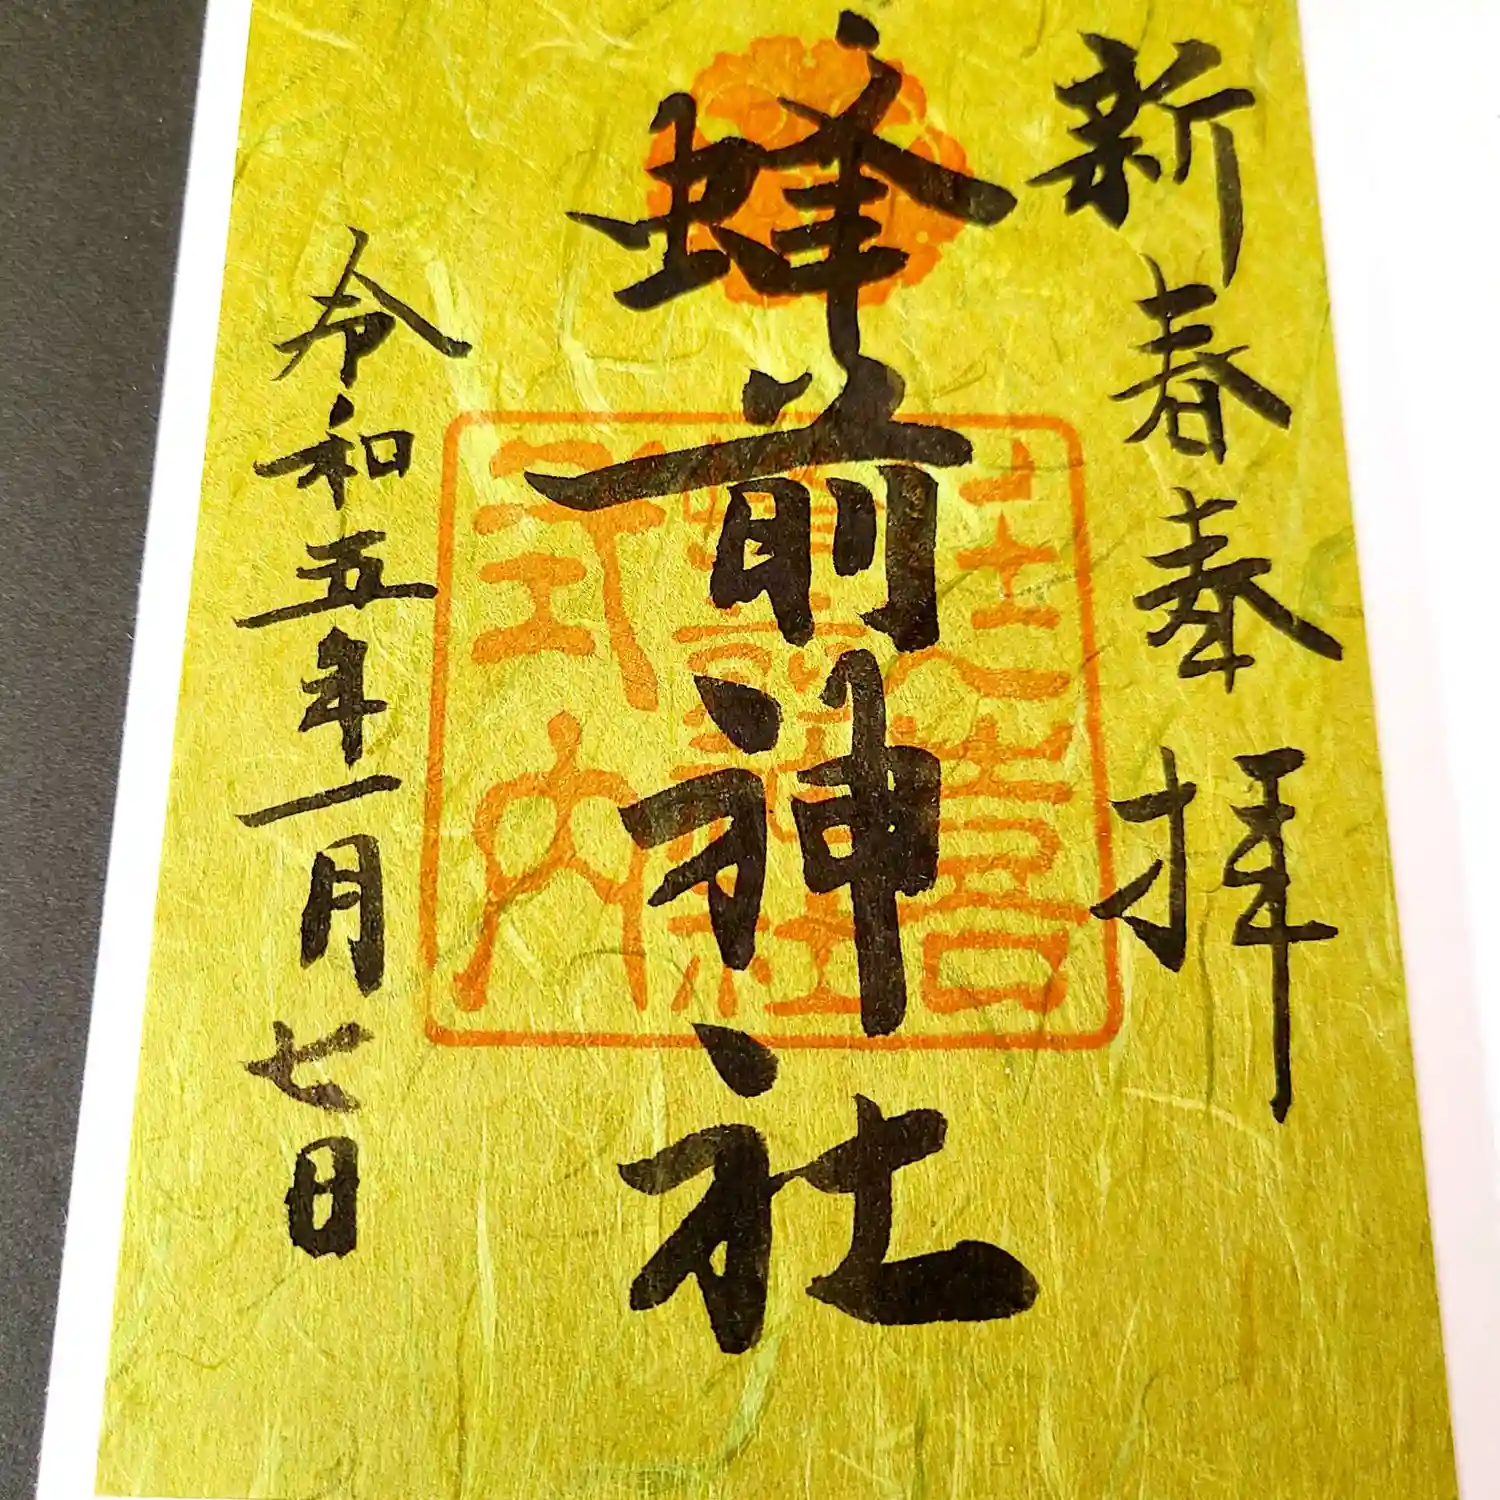 新春奉拝
蜂前神社
令和五年一月七日
式内